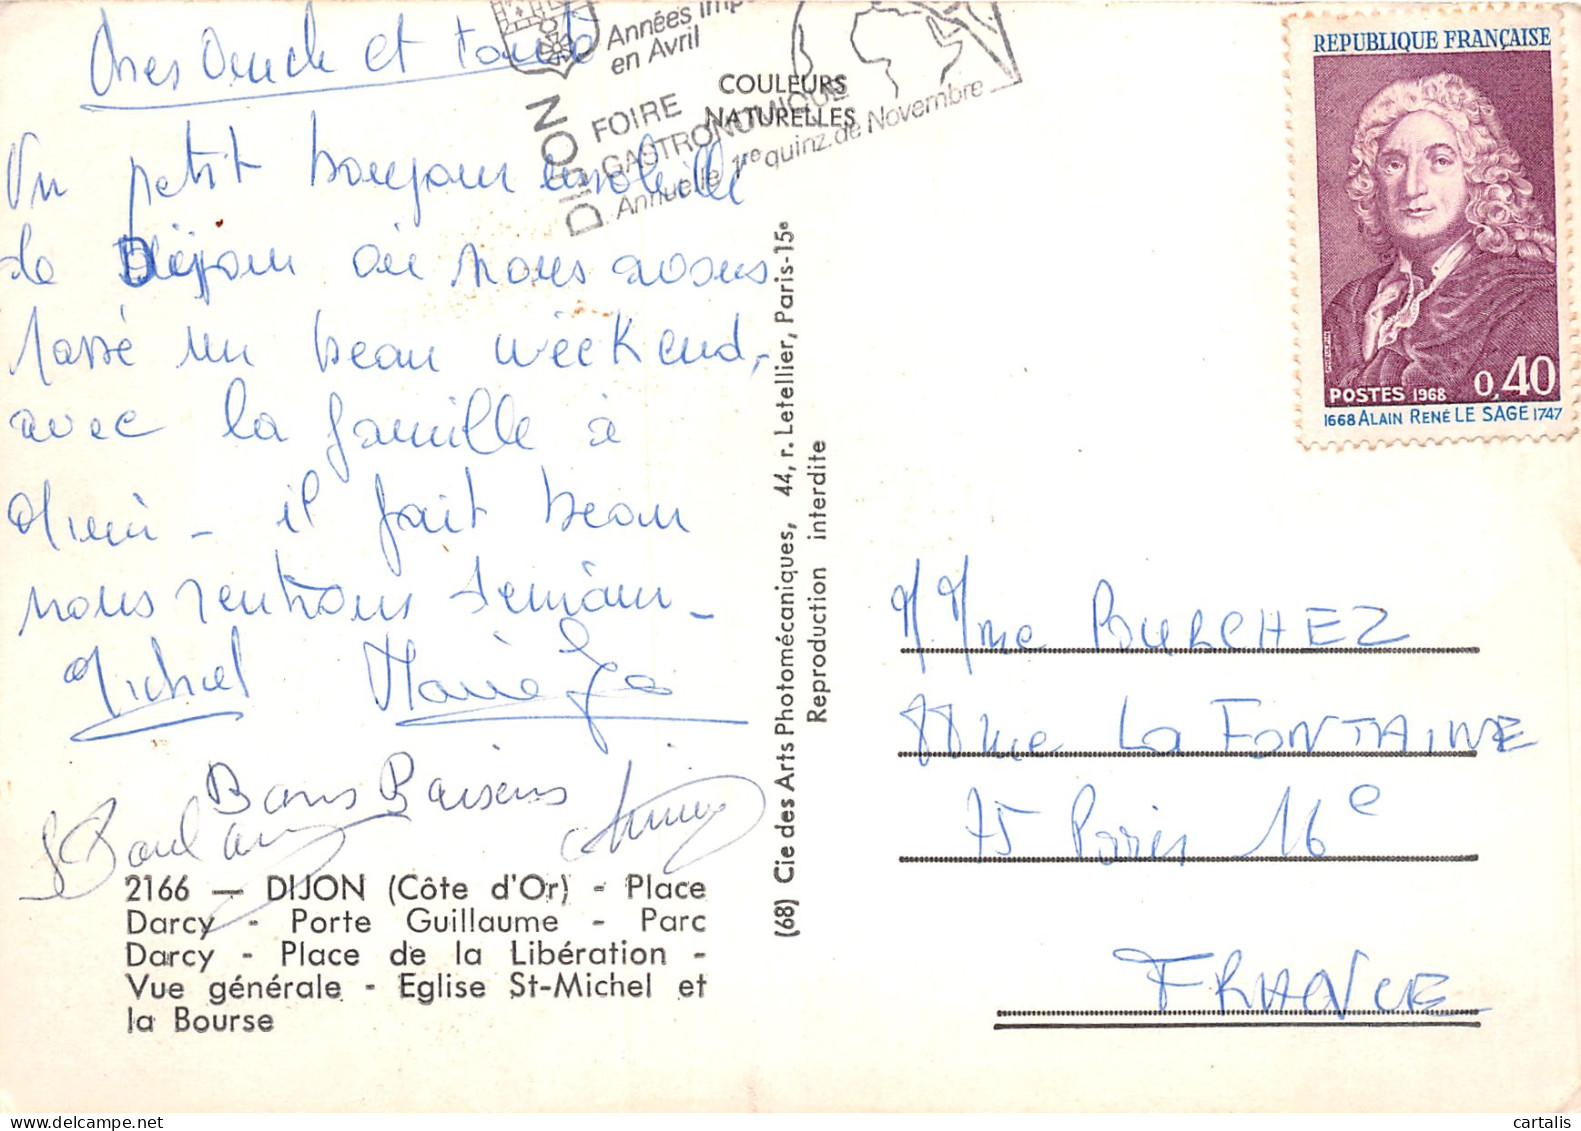 Années Imp
en Avril
DIJON
FOIRE
GASTRONOMIQUE
Annuelle 1re quinz. de Novembre
COULEURS
NATURELLES
REPUBLIQUE FRANÇAISE
POSTES 1968 0,40
1668 ALAIN RENÉ LE SAGE 1747
et
Un petit bonjour ensoleillé
de Dijon où nous avons
passé un beau week end,
avec la famille à
il fait beau
nous rentrons demain _
Michel Marie
Bons Baisers
2166 — DIJON (Côte d'Or) - Place
Darcy - Porte Guillaume - Parc
Darcy - Place de la Libération -
Vue générale - Eglise St-Michel et
la Bourse
(68) Cie des Arts Photomécaniques, 44, r. Letellier, Paris-15e
Reproduction interdite
M. Mme BURCHEZ
rue LA FONTAINE
75 Paris 16e
FRANCE
cartalis